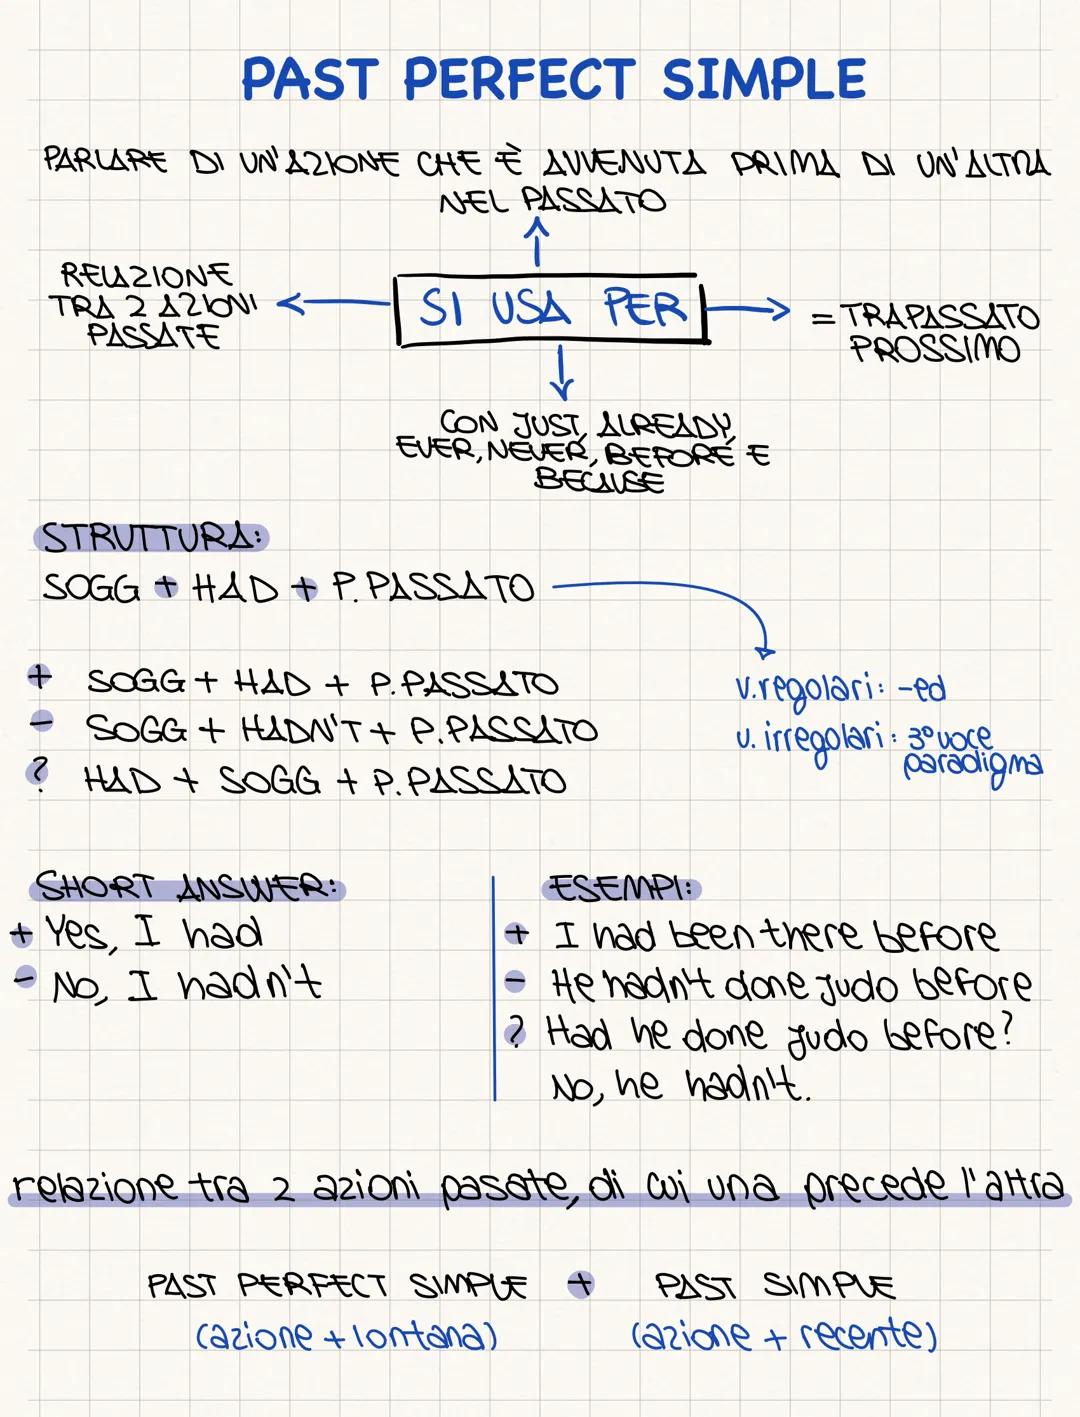 PAST PERFECT SIMPLE
PARLARE DI UN'AZIONE CHE È AVVENUTA PRIMA DI UN'ALTRA
NEL PASSATO
RELAZIONE
TRA 2 AZIONI
PASSATE
SI USA PER
= TRAPASSATO
PROSSIMO
CON JUST, ALREADY,
EVER, NEVER, BEFORE E
BECAUSE
STRUTTURA:
SOGG + HAD + P. PASSATO
+ SOGG + HAD + P. PASSATO
- SOGG + HADN'T + P. PASSATO
? HAD + SOGG + P. PASSATO
v. regolari: -ed
v. irregolari: 3° voce
paradigma
SHORT ANSWER:
+ Yes, I had
- No, I hadn't
ESEMPI:
+ I had been there before
- He hadn't done judo before
? Had he done judo before?
No, he hadn't.
relazione tra 2 azioni passate, di cui una precede l'altra
PAST PERFECT SIMPLE + PAST SIMPLE
(azione + lontana) (azione + recente)